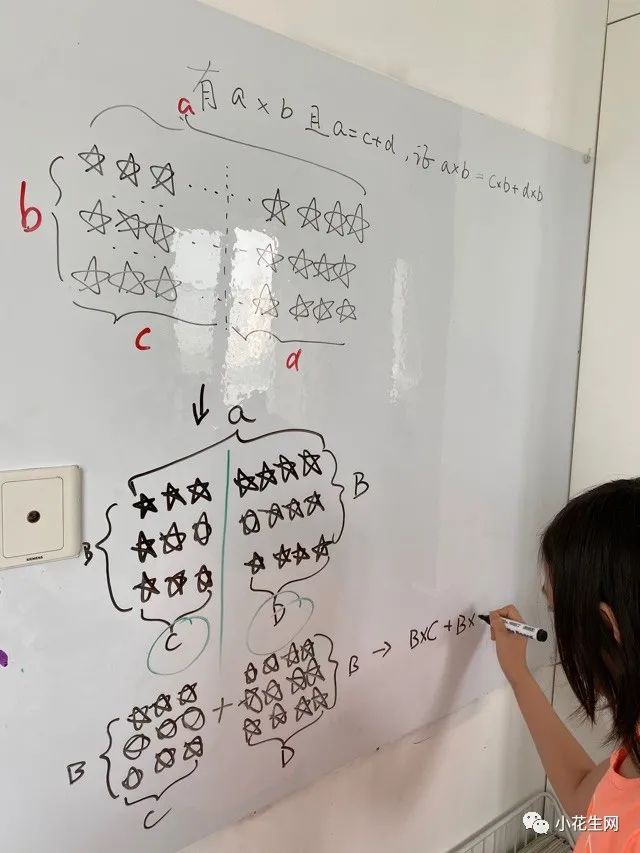 有 a×b 且 a=c+d , 证 a×b = c×b + d×b
a
b
c
d
↓
a
B
B
C
D
B
C
+
D
B → B×C + B×
SIEMENS
小花生网